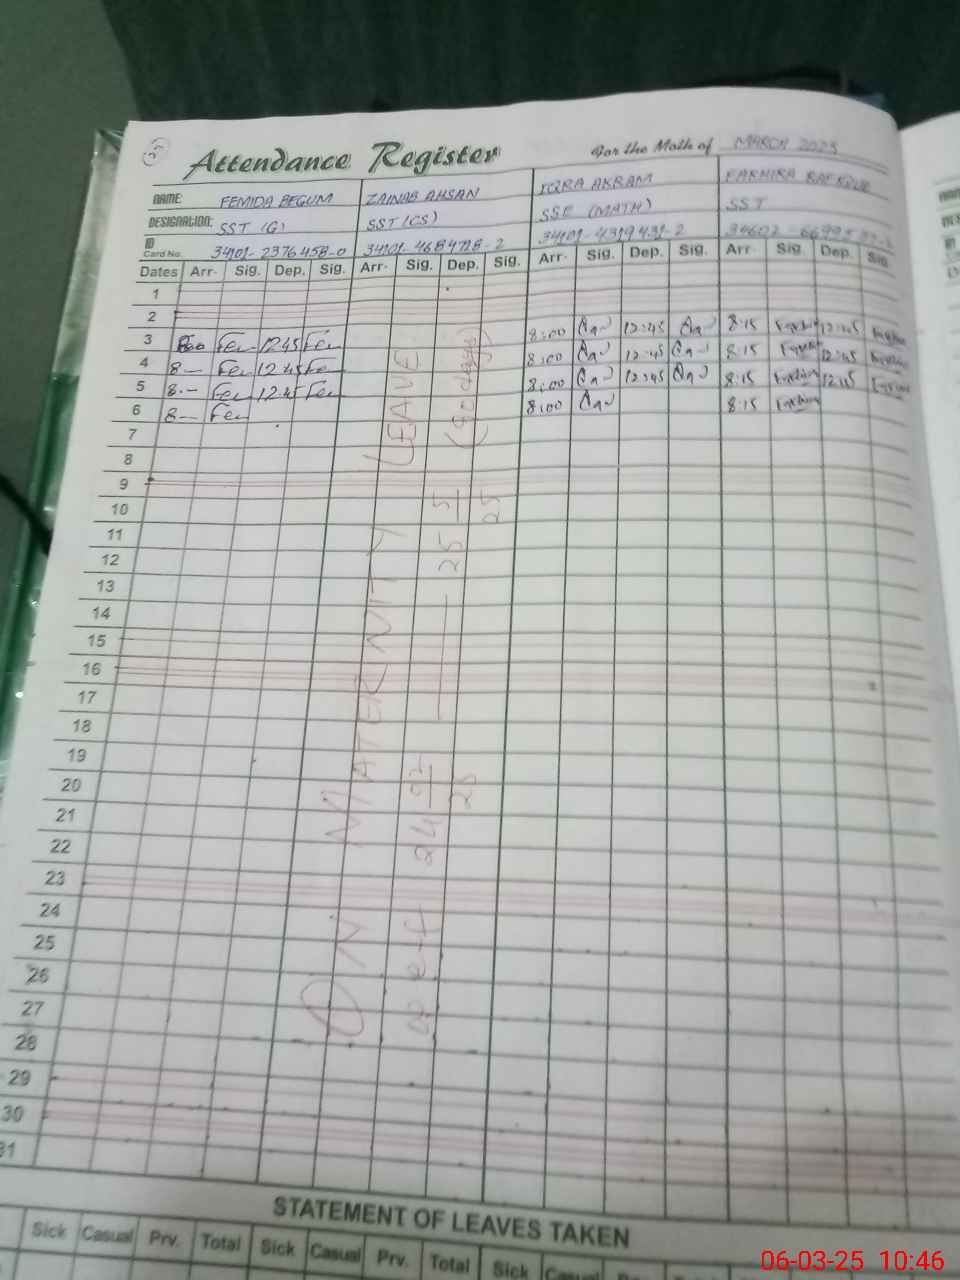 Attendance Register For the Moth of MARCH 2025
NAME: FEMIDA BEGUM ZAINAB AHSAN IQRA AKRAM FAKHIRA
DESIGNATION: SST (G) SST (CS) SSE (MATH) SST
ID Card No. 34101-2376458-0 34101-4684728-2 34101-4319431-2 34602-
Dates Arr. Sig. Dep. Sig. Arr. Sig. Dep. Sig. Arr. Sig. Dep. Sig. Arr. Sig. Dep. Sig.
1
2
3 1245 8:00 12:45 8:15
4 8- 12:45 8:00 12:45 8:15 12:45
5 8- 12:45 8:00 12:45 8:15
6 8- 8:00 8:15
7
8
9
10
11
12
13
14
15
16
17
18
19
20
21
22
23
24
25
26
27
28
29
30
31
ON MATERNITY LEAVE
w.e.f 24 02 25 — 25 5 25
(90 days)
STATEMENT OF LEAVES TAKEN
Sick Casual Prv. Total Sick Casual Prv. Total Sick Casual
06-03-25 10:46